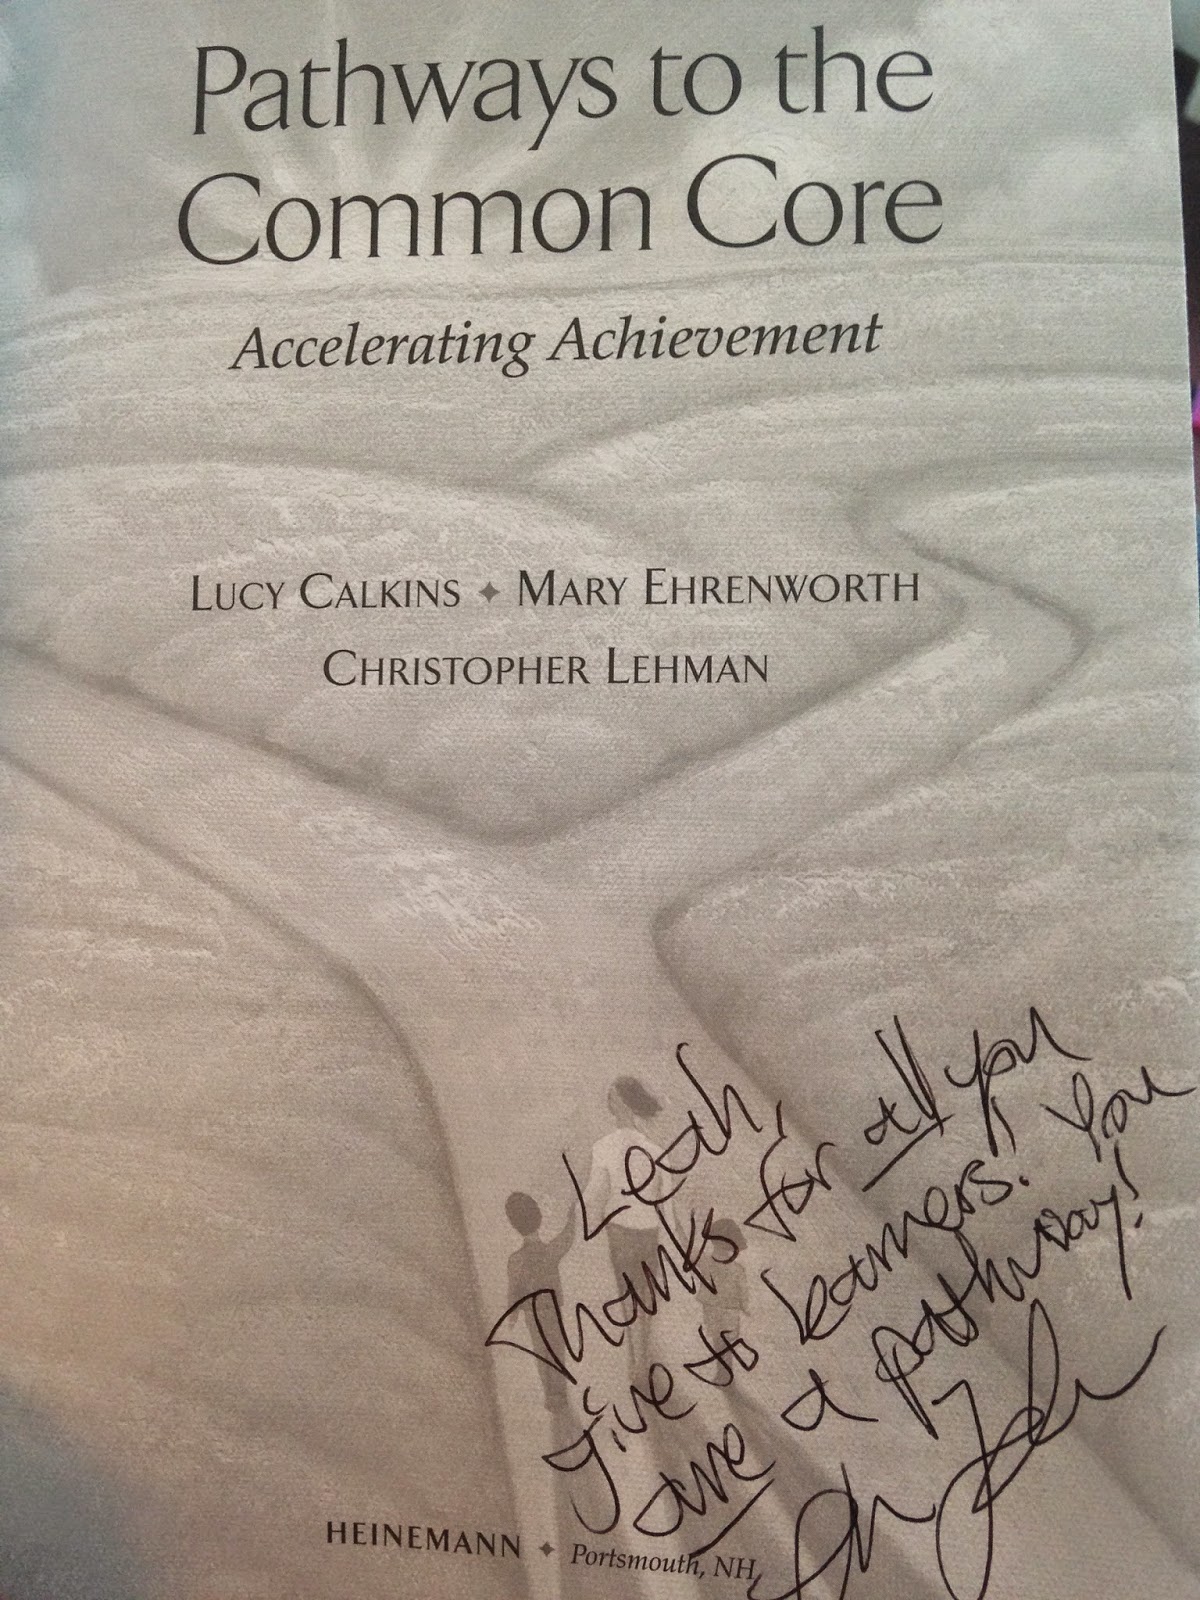 Pathways to the
Common Core
Accelerating Achievement
LUCY CALKINS ✦ MARY EHRENWORTH
CHRISTOPHER LEHMAN
Leah,
Thanks for all you
give to learners! You
are a pathway!
HEINEMANN ✦ Portsmouth, NH